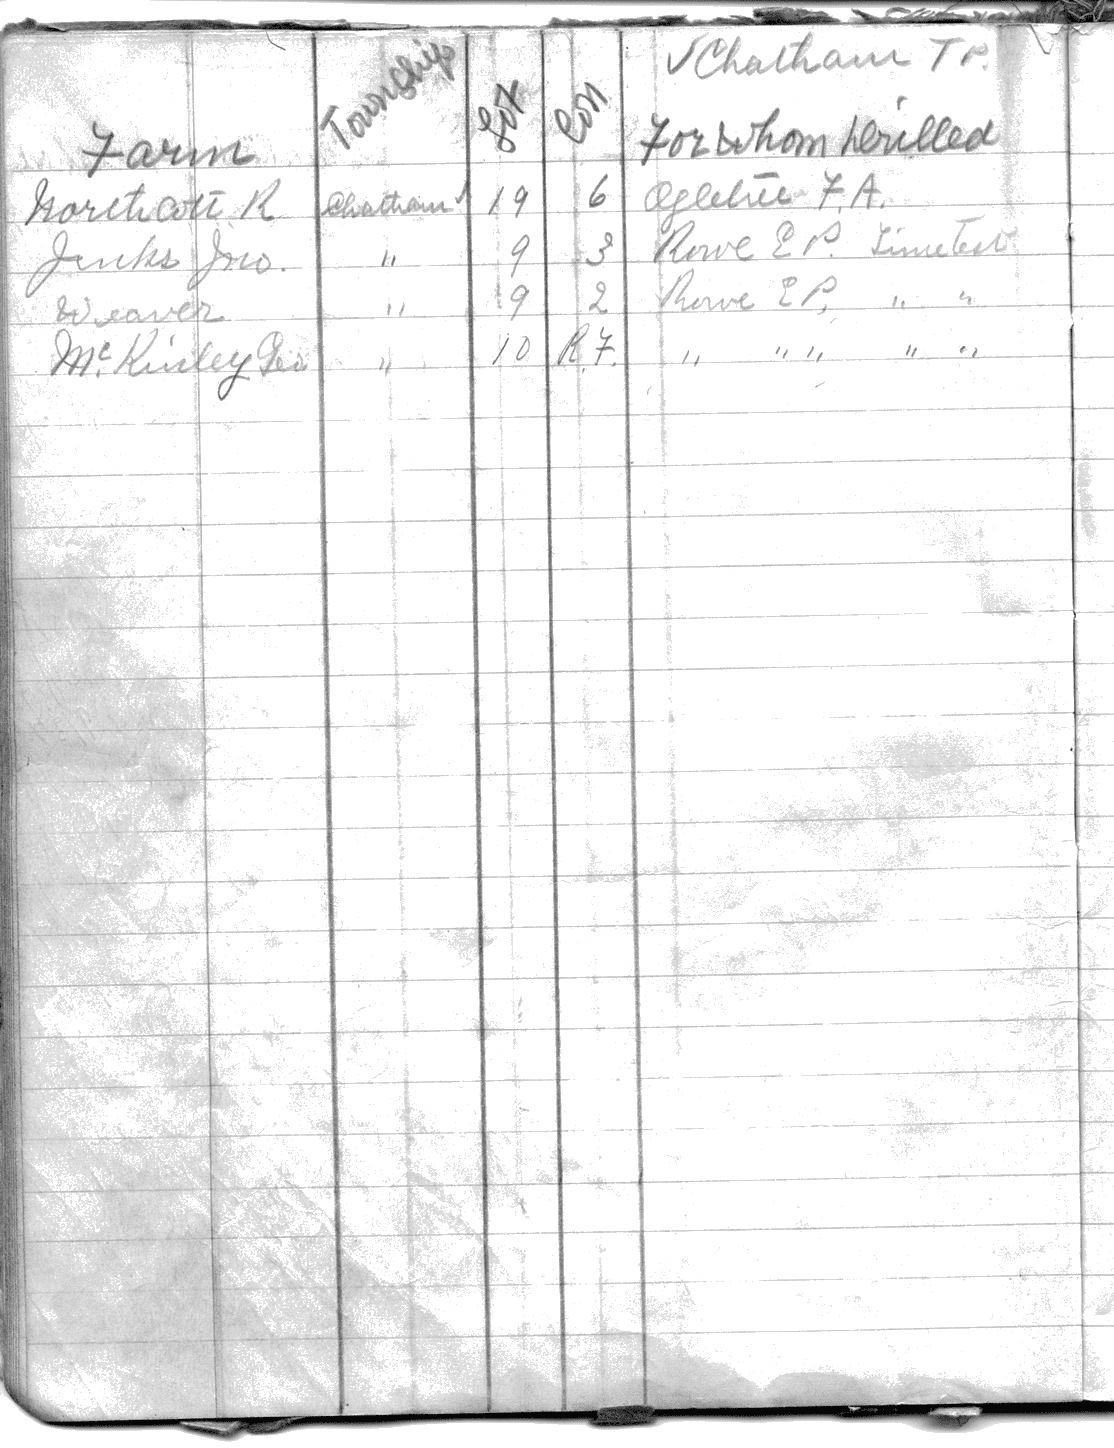 √ Chatham Tp.
Farm Township Lot Con For Whom Drilled
Northcott R Chatham 19 6 Ogletree F.A.
Jenks Jno. " 9 3 Rowe E P. Lime Test
Weaver " 9 2 Rowe E P, " "
McKinley Geo " 10 R.F. " " " " "